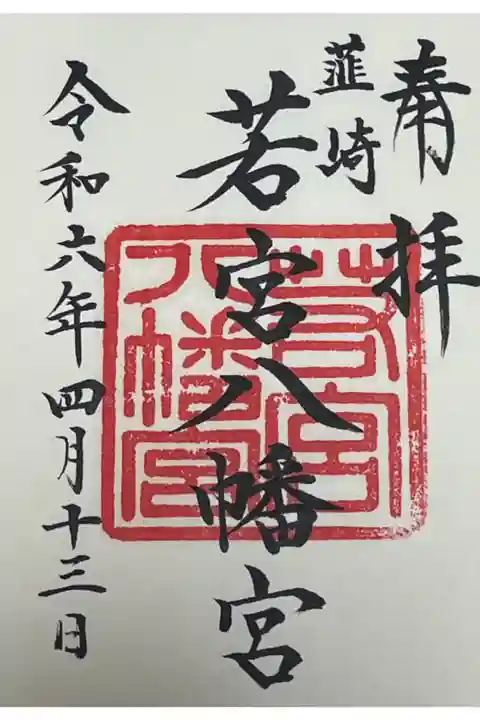 奉拝
韮崎
若宮八幡宮
若宮
八幡宮
令和六年四月十三日